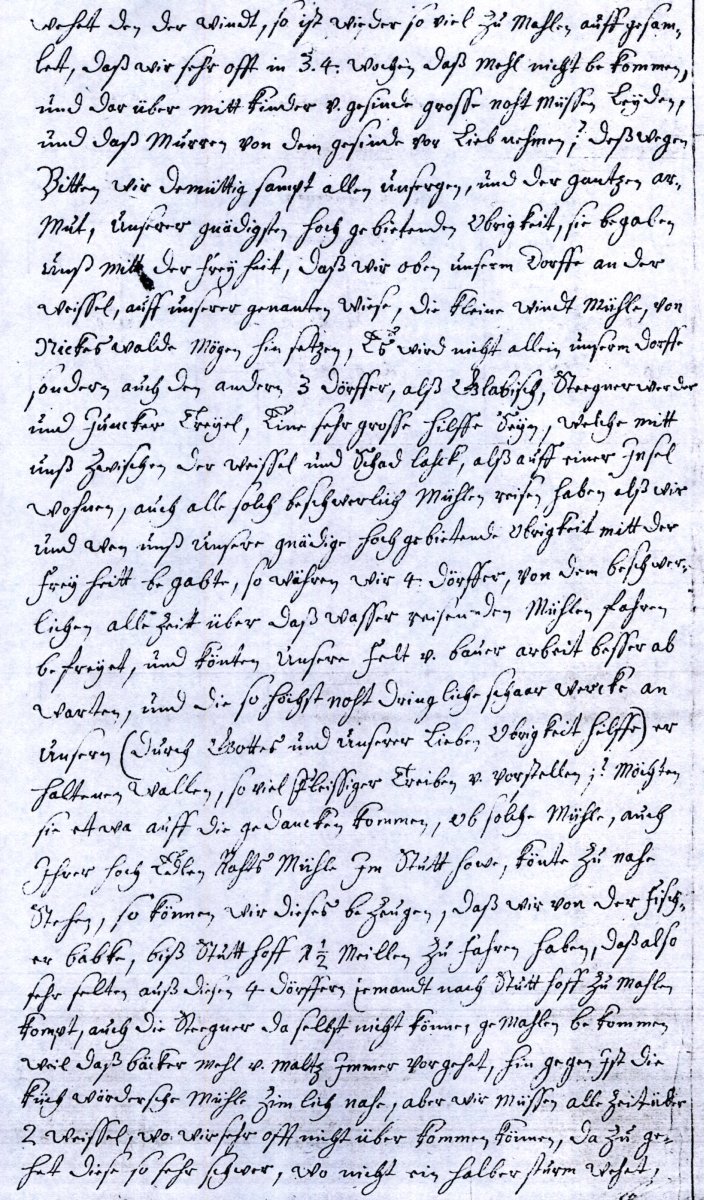 wehet den der windt, so ist wieder so viel zu Mahlen auff gesam-
let, daß wir sehr offt in 3. 4. wochen daß Mehl nicht bekommen,
und dar über mitt kinder v. gesinde grosse noht Müssen Leÿden,
und daß Murren von dem gesinde vor Lieb nehmen; deßwegen
Bitten wir demüttig sampt allen unsergen, und der gantzen ar-
Mut, Unserer gnädigsten hoch gebietenden Obrigkeit, sie begaben
Unß mitt der freÿheit, daß wir oben unserm Dorffe an der
weissel, auff unserer genanten wiese, die kleine windt Mühle, von
Nickeswalde Mögen hin setzen, Eß wird nicht allein unserm dorffe
sondern auch den andern 3 dörffer, alß Glabisch, Steegnerwerder
und Juncker Treÿel, Eine sehr grosse hilffe Seÿn, welche mitt
unß zwischen der weissel und Schad lahck, alß auff einer Insel
wohnen, auch alle solch beschwerlich Mühlen reisen haben alß wir
und wen unß unsere gnädige hoch gebietende Obrigkeit mitt der
freÿ heitt begabte, so währen wir 4 dörffer, von dem beschwer-
lichen alle Zeitt über daß wasser reisenden Mühlen fahren
befreÿet, und könten Unsere felt v. bauer arbeit besser ab
warten, und die so höchst noht dringliche schaar wercke an
Unsern (durch Gottes und Unserer Lieben Obrigkeit hilffe) er
haltenen wallen, so viel fleissiger Treiben v. vorstellen; Möchten
sie etwa auff die gedancken kommen, ob solche Mühle, auch
Ihrer hoch Edlen Rahts Mühle Im Stutt howe, könte zu nahe
Stehen, so können wir dieses bezeugen, daß wir von der fisch-
er babke, biß Stutthoff 1 1/2 Meillen zu fahren haben, daß also
sehr selten auß diesen 4 dörffern jemandt nach Stutthoff zu mahlen
kompt, auch die Steegner da selbst nicht können gemahlen bekommen
weil daß bäcker mehl v. maltz Immer vorgehet, hin gegen Ist die
küchwördersche Mühle zimlich nahe, aber wir Müssen alle zeit über
2 weissel, wo wir sehr offt nicht über kommen können, da zu ge-
het diese so sehr schwer, wo nicht ein halber sturm wehet,